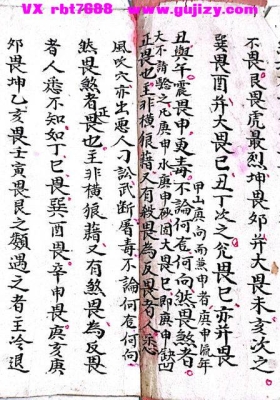 VX rbt7688 www.gujizy.com
不畏艮畏虎最烈坤畏卯并大畏未亥次之
巽畏酉并大畏巳丑丁次之兊畏巳亦并畏
甲山庚向而兼申者庚申流年
丑與午震畏申更毒不論何在何向煞畏煞者
大不諸驗之凡庚申水庚申秋固大畏巳即庚申缺凹
正畏也主非橫狼藉又有殺畏為反畏者人悉
風吹穴亦出惡人刁訟武断屠毒不論何在何向
煞畏煞者正畏也主非橫狼藉又有煞畏為反畏
者人悉不知如丁巳畏巽酉畏辛申畏庚亥庚
卯畏坤乙亥畏壬寅畏艮之類遇之者主冷退